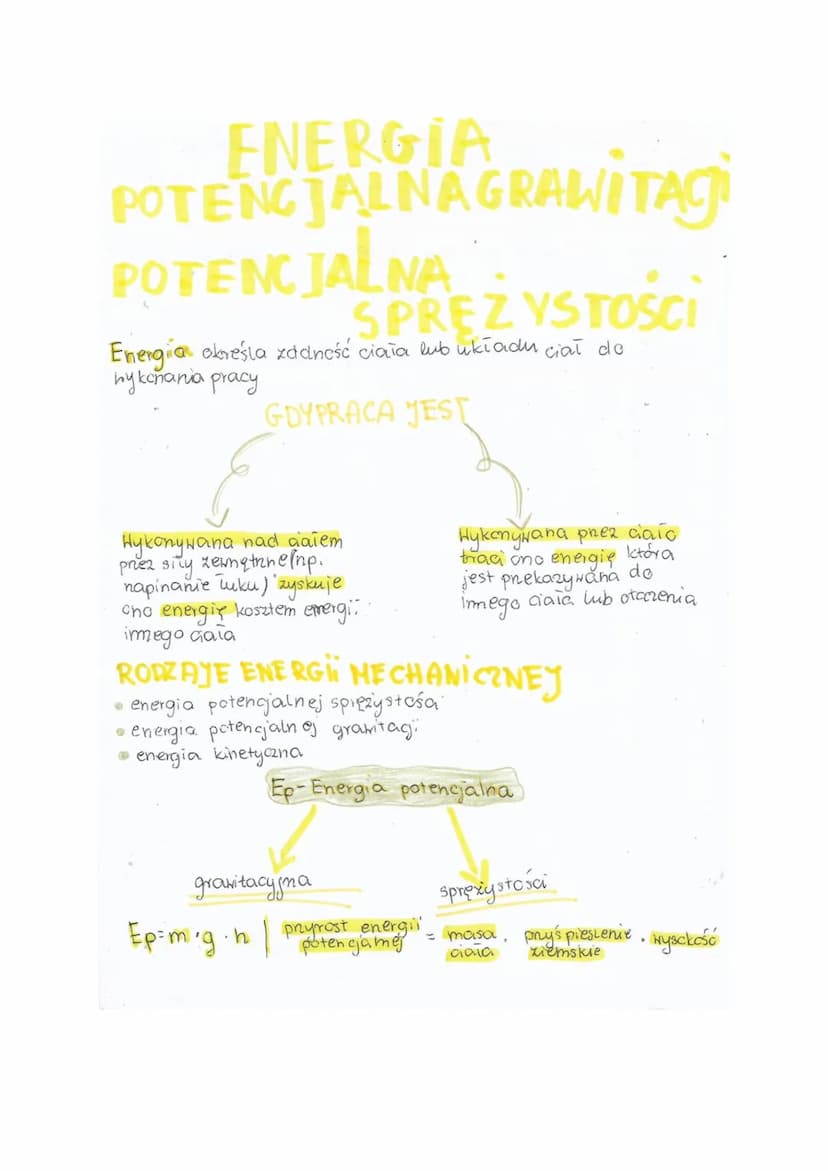 ENERGIA
POTENCJALNA GRAWITACJI
I
POTENCJALNA
SPRĘŻYSTOŚCI
Energia określa zdolność ciała lub układu ciał do
wykonania pracy
GDY PRACA JEST
Wykonywana nad ciałem
przez siły zewnętrzne (np.
napinanie łuku) zyskuje
ono energię kosztem energii
innego ciała
Wykonywana przez ciało
traci ono energię która
jest przekazywana do
innego ciała lub otoczenia
RODZAJE ENERGII MECHANICZNEJ
• energia potencjalnej sprężystości
• energia potencjalnej grawitacji
• energia kinetyczna
Ep - Energia potencjalna
grawitacyjna
sprężystości
Ep=m·g·h | przyrost energii potencjalnej = masa ciała · przyśpieszenie ziemskie · wysokość